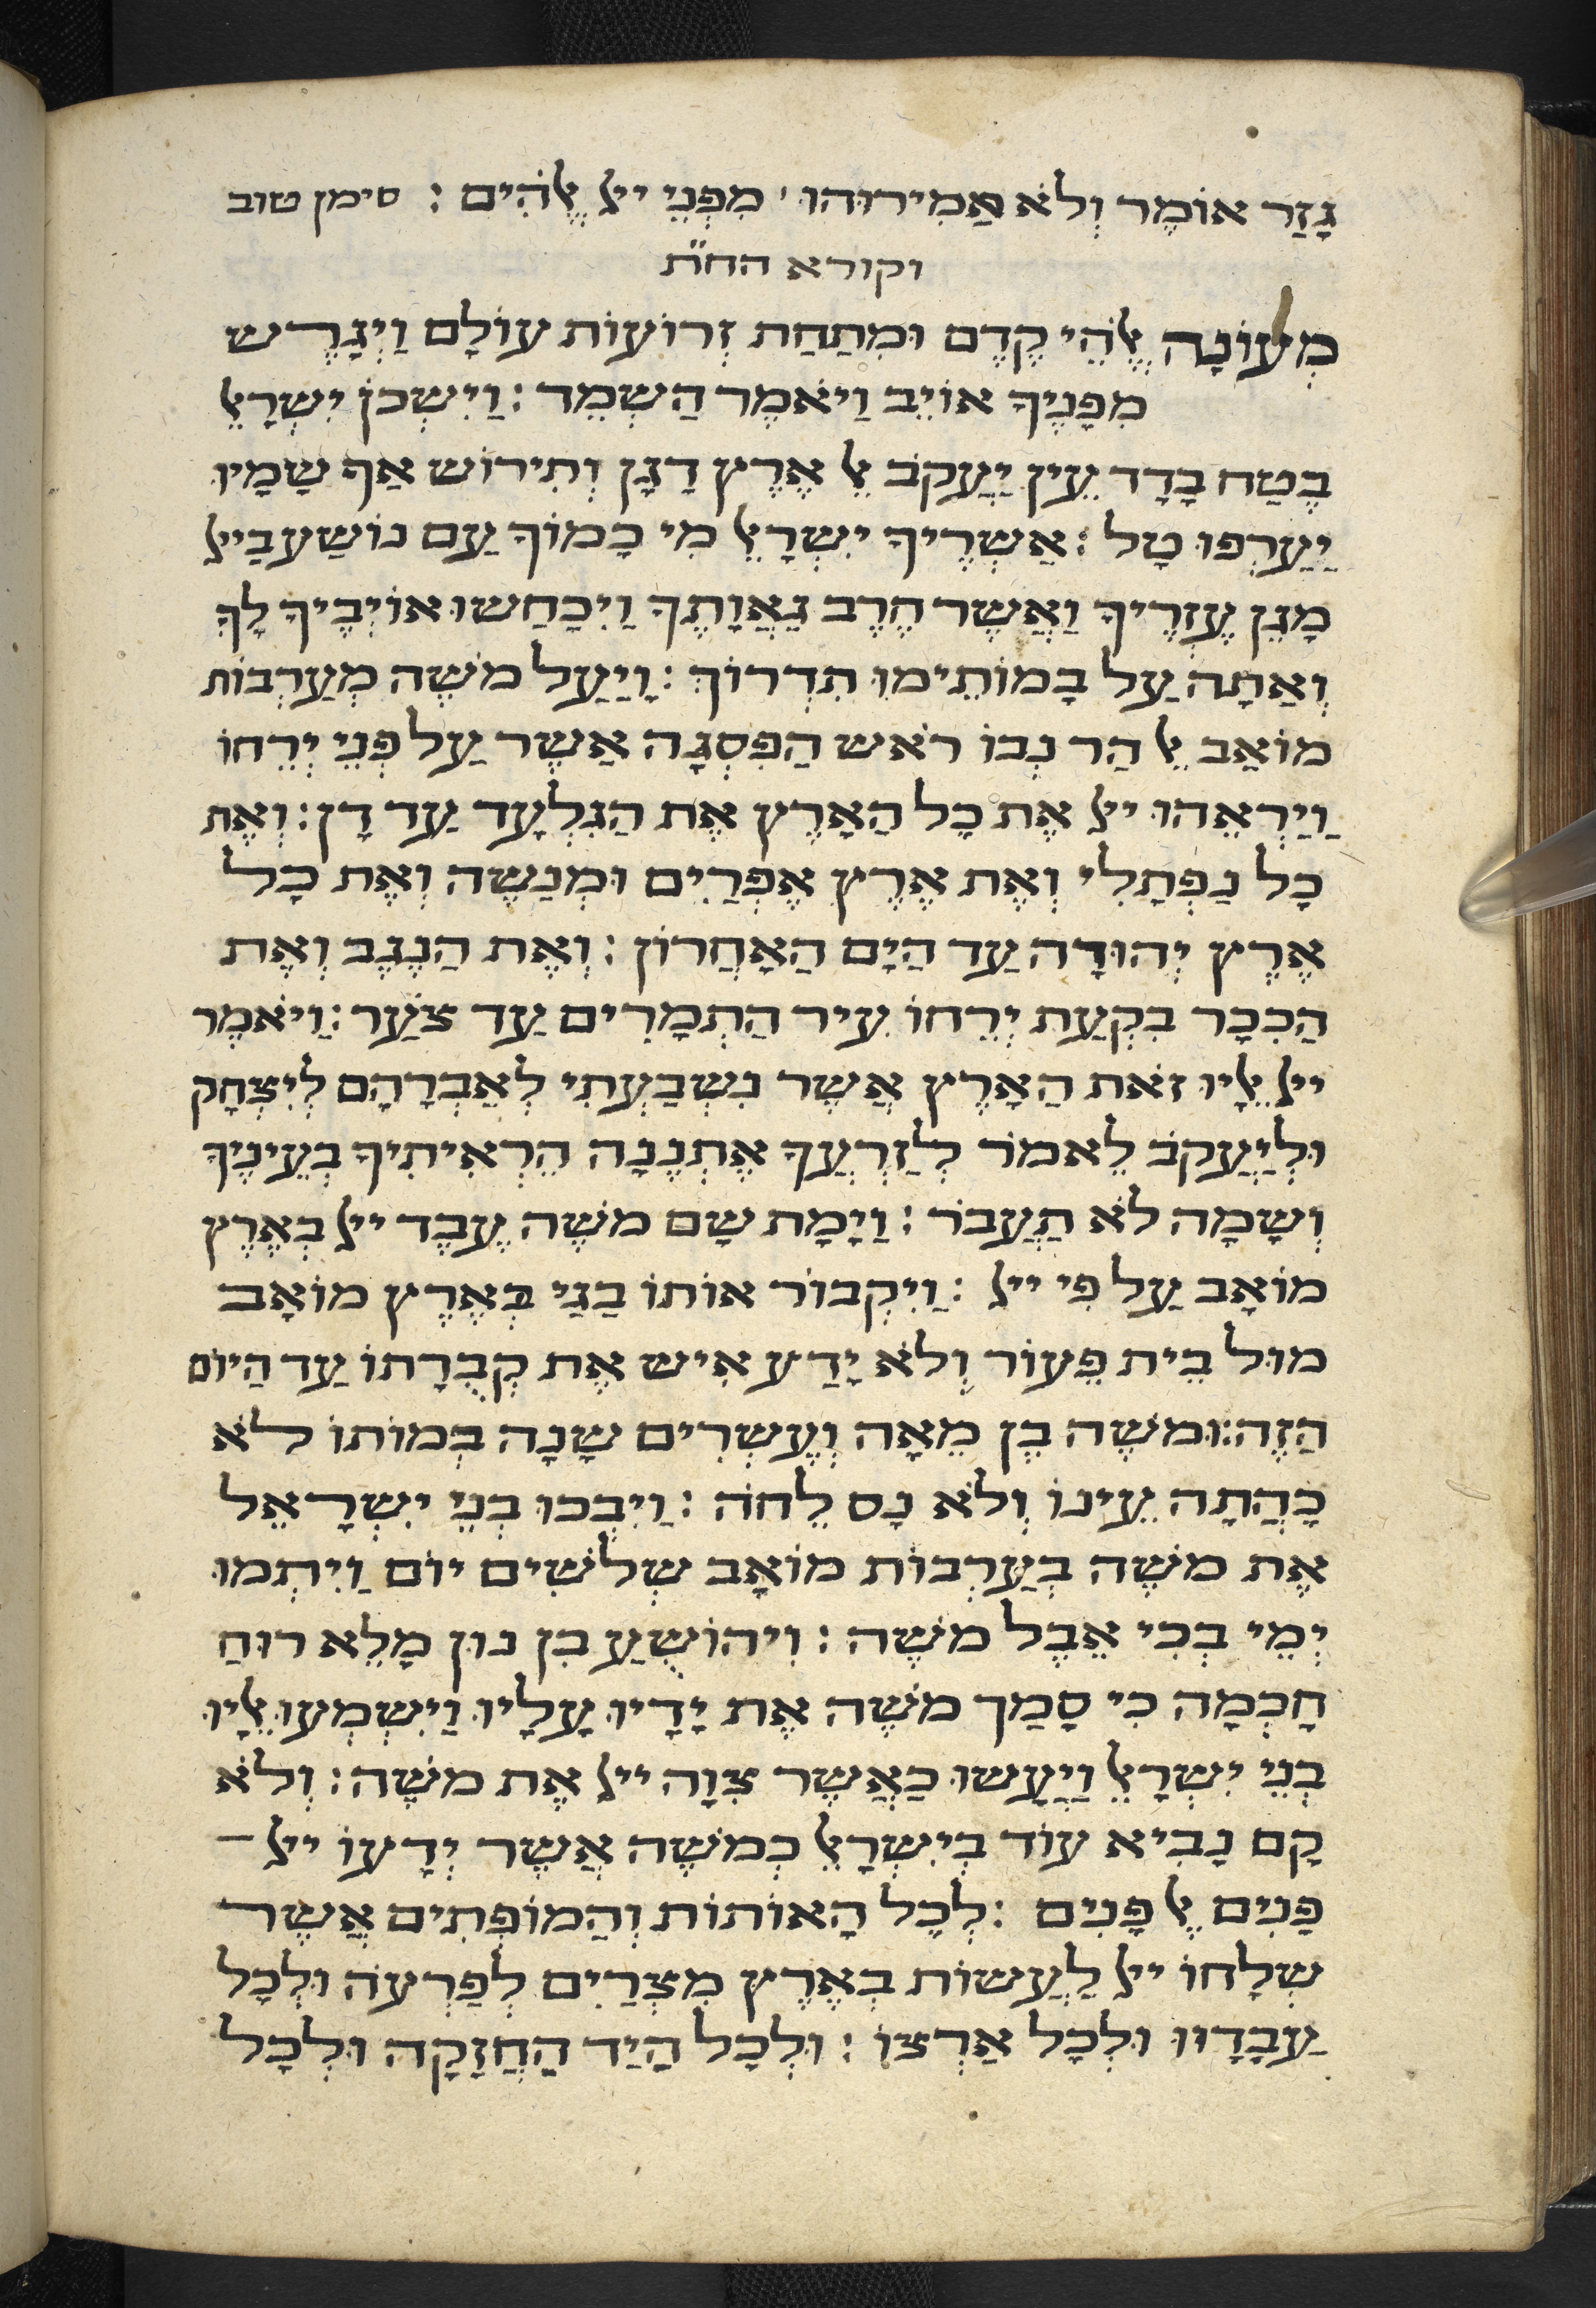 גָזַר אוֹמֶר וְלֹא הֲמִירוּהוּ׳ מִפְּנֵי ייָ אֱלֹהִים : סימן טוב
וקורא הח״ת
מְעוֹנָה אֱלֹהֵי קֶדֶם וּמִתַחַת זְרוֹעוֹת עוֹלָם וַיְגָרֶש
מִפָנֶיךָ אוֹיֵב וַיֹאמֶר הַשְמֵד : וַיִשְכוֹן יִשְרָאֵל
בֶטַח בָדָד עֵין יַעֲקֹב אֶל אֶרֶץ דָגָן וְתִירוֹש אַף שָמָיו
יַעַרְפוּ טָל : אַשְרֶיךָ יִשְרָאֵל מִי כָמוֹךָ עַם נוֹשַע בַייָ
מָגֵן עֶזְרֶיךָ וַאֲשֶר חֶרֶב גַאֲוָתֶךָ וַיִכָחֲשוּ אוֹיְבֶיךָ לָךְ
וְאַתָה עַל בָמוֹתֵימוֹ תִדְרוֹךְ : וַיַעַל מֹשֶה מְעַרְבוֹת
מוֹאָב אֶל הַר נְבוֹ רֹאש הַפִסְגָה אֲשֶר עַל פְנֵי יְרֵחוֹ
וַיַרְאֵהוּ ייָ אֶת כָל הָאָרֶץ אֶת הַגִלְעָד עַד דָן : וְאֶת
כָל נַפְתָלִי וְאֶת אֶרֶץ אֶפְרַיִם וּמְנַשֶה וְאֶת כָל
אֶרֶץ יְהוּדָה עַד הַיָם הָאַחֲרוֹן : וְאֶת הַנֶגֶב וְאֶת
הַכִכָר בִקְעַת יְרֵחוֹ עִיר הַתְמָרִים עַד צֹעַר : וַיֹאמֶר
ייָ אֵלָיו זֹאת הָאָרֶץ אֲשֶר נִשְבַעְתִי לְאַבְרָהָם לְיִצְחָק
וּלְיַעֲקֹב לֵאמֹר לְזַרְעֲךָ אֶתְנֶנָה הֶרְאִיתִיךָ בְעֵינֶיךָ
וְשָמָה לֹא תַעֲבֹר : וַיָמָת שָם מֹשֶה עֶבֶד ייָ בְאֶרֶץ
מוֹאָב עַל פִי ייָ : וַיִקְבוֹר אוֹתוֹ בַגַי בְאֶרֶץ מוֹאָב
מוּל בֵית פְעוֹר וְלֹא יָדַע אִיש אֶת קְבֻרָתוֹ עַד הַיוֹם
הַזֶה : וּמֹשֶה בֶן מֵאָה וְעֶשְרִים שָנָה בְמוֹתוֹ לֹא
כָהֲתָה עֵינוֹ וְלֹא נָס לֵחֹה : וַיִבְכוּ בְנֵי יִשְרָאֵל
אֶת מֹשֶה בְעַרְבוֹת מוֹאָב שְלֹשִים יוֹם וַיִתְמוּ
יְמֵי בְכִי אֵבֶל מֹשֶה : וִיהוֹשֻעַ בִן נוּן מָלֵא רוּחַ
חָכְמָה כִי סָמַך מֹשֶה אֶת יָדָיו עָלָיו וַיִשְמְעוּ אֵלָיו
בְנֵי יִשְרָאֵל וַיַעֲשוּ כַאֲשֶר צִוָה ייָ אֶת מֹשֶה : וְלֹא
קָם נָבִיא עוֹד בְיִשְרָאֵל כְמֹשֶה אֲשֶר יְדָעוֹ ייָ
פָנִים אֶל פָנִים : לְכָל הָאוֹתוֹת וְהַמוֹפְתִים אֲשֶר
שְלָחוֹ ייָ לַעֲשוֹת בְאֶרֶץ מִצְרַיִם לְפַרְעֹה וּלְכָל
עֲבָדָיו וּלְכָל אַרְצוֹ : וּלְכָל הַיָד הַחֲזָקָה וּלְכָל